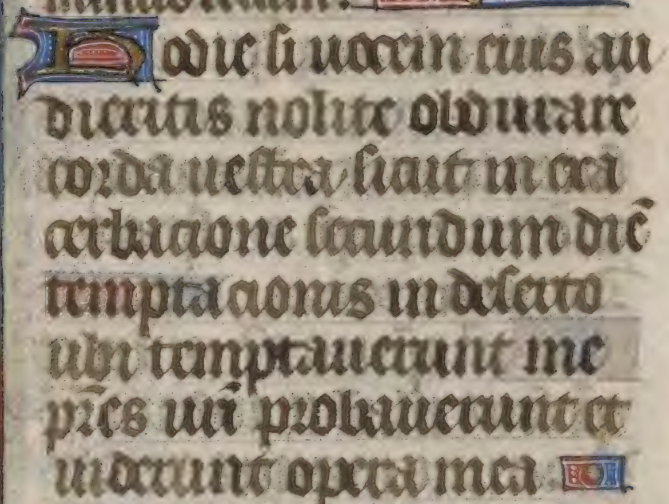 Hodie si uocem eius au
dieritis nolite obdurare
corda uestra sicut in exa
cerbacione secundum diē
temptacionis in deserto
ubi temptauerunt me
pr̄es ur̄i probauerunt et
uiderunt opera mea